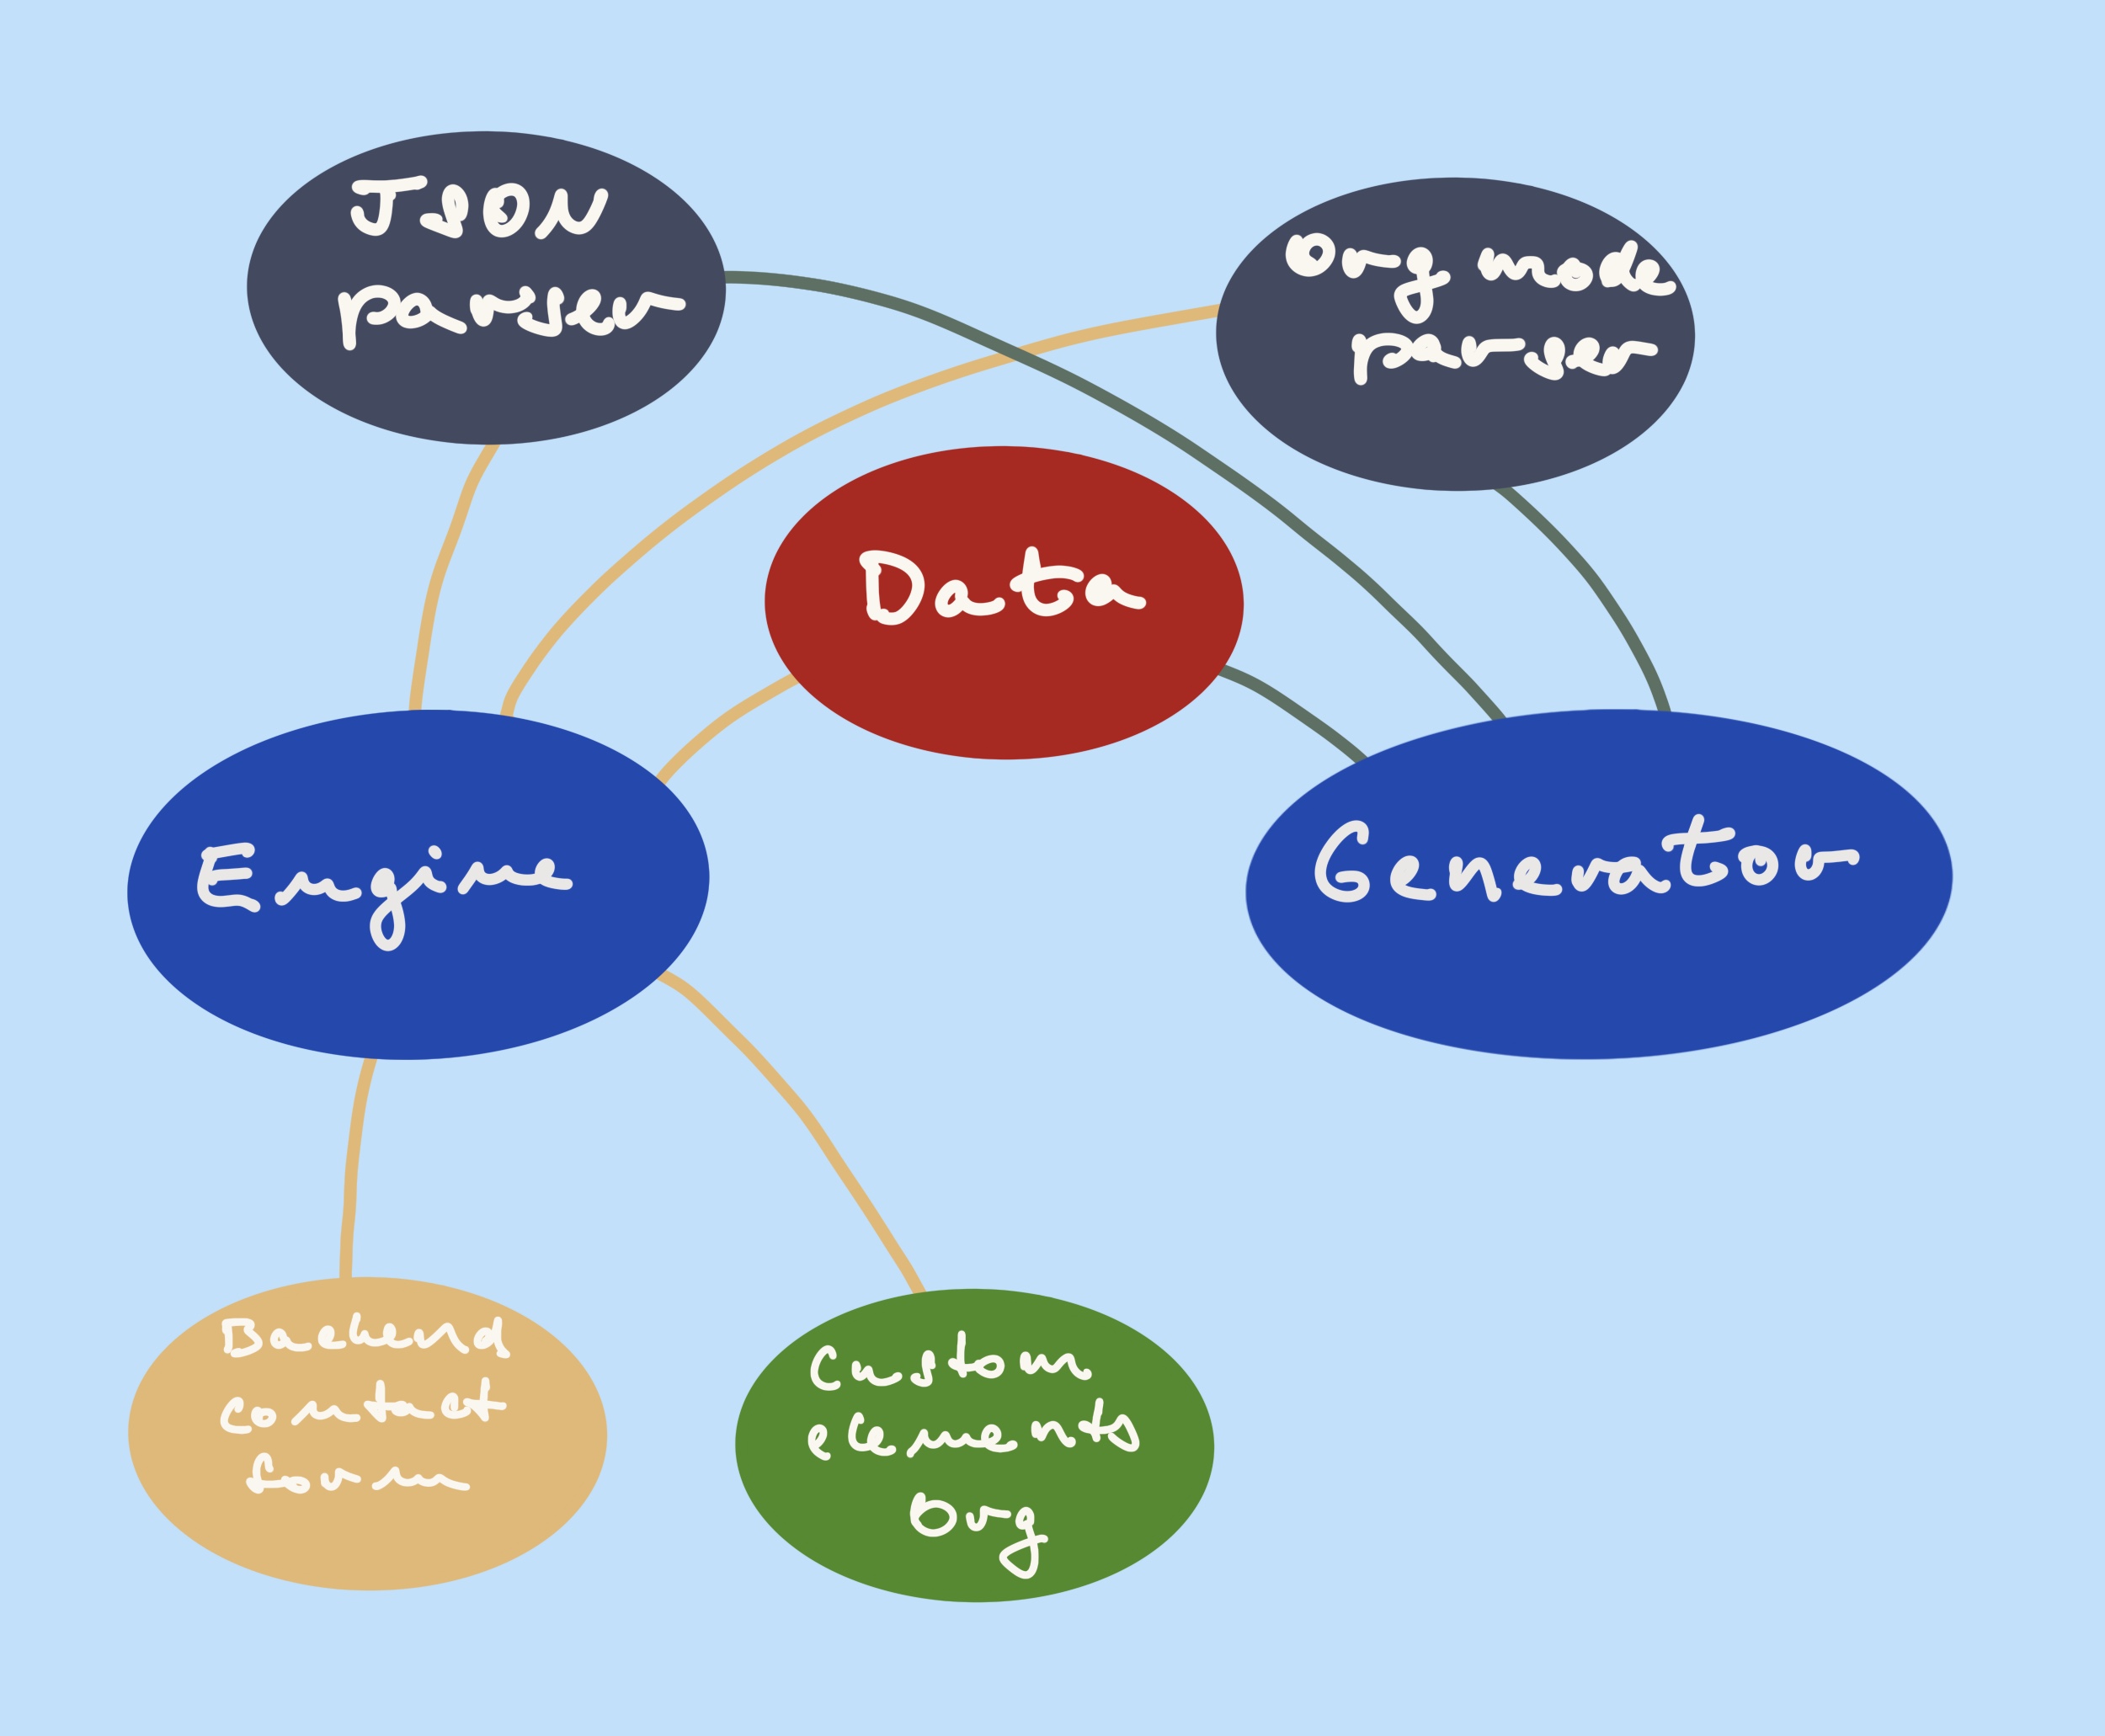 JSON
parser
Org mode
parser
Data
Engine
Generator
Backend
contact
form
Custom
elements
Org